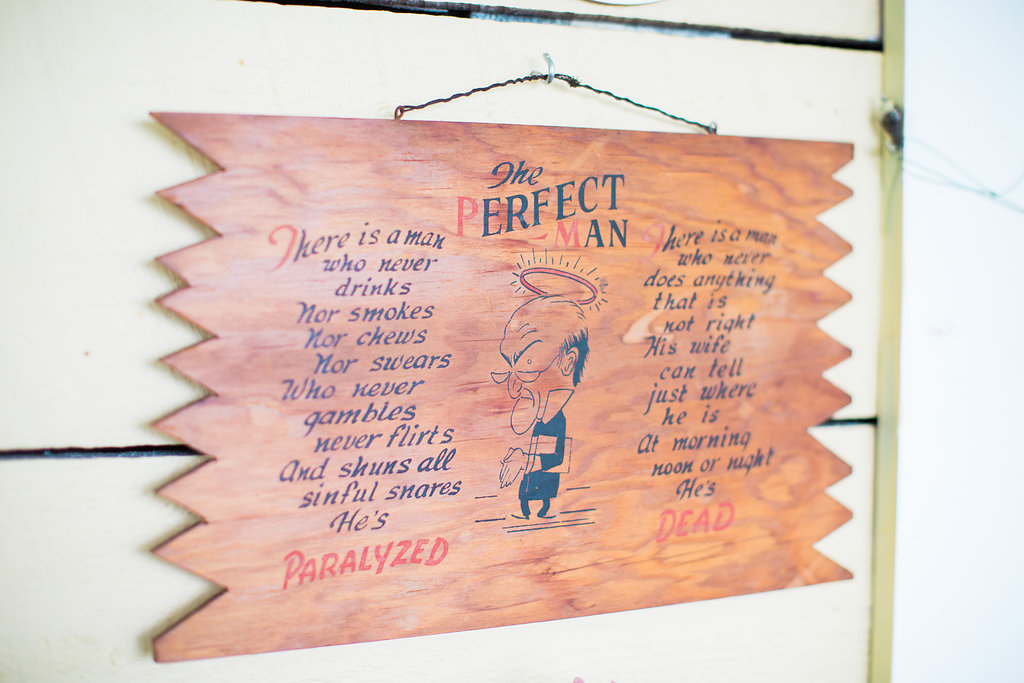 The
PERFECT
MAN
There is a man
who never
drinks
Nor smokes
Nor chews
Nor swears
Who never
gambles
never flirts
And shuns all
sinful snares
He's
PARALYZED
There is a man
who never
does anything
that is
not right
His wife
can tell
just where
he is
At morning
noon or night
He's
DEAD